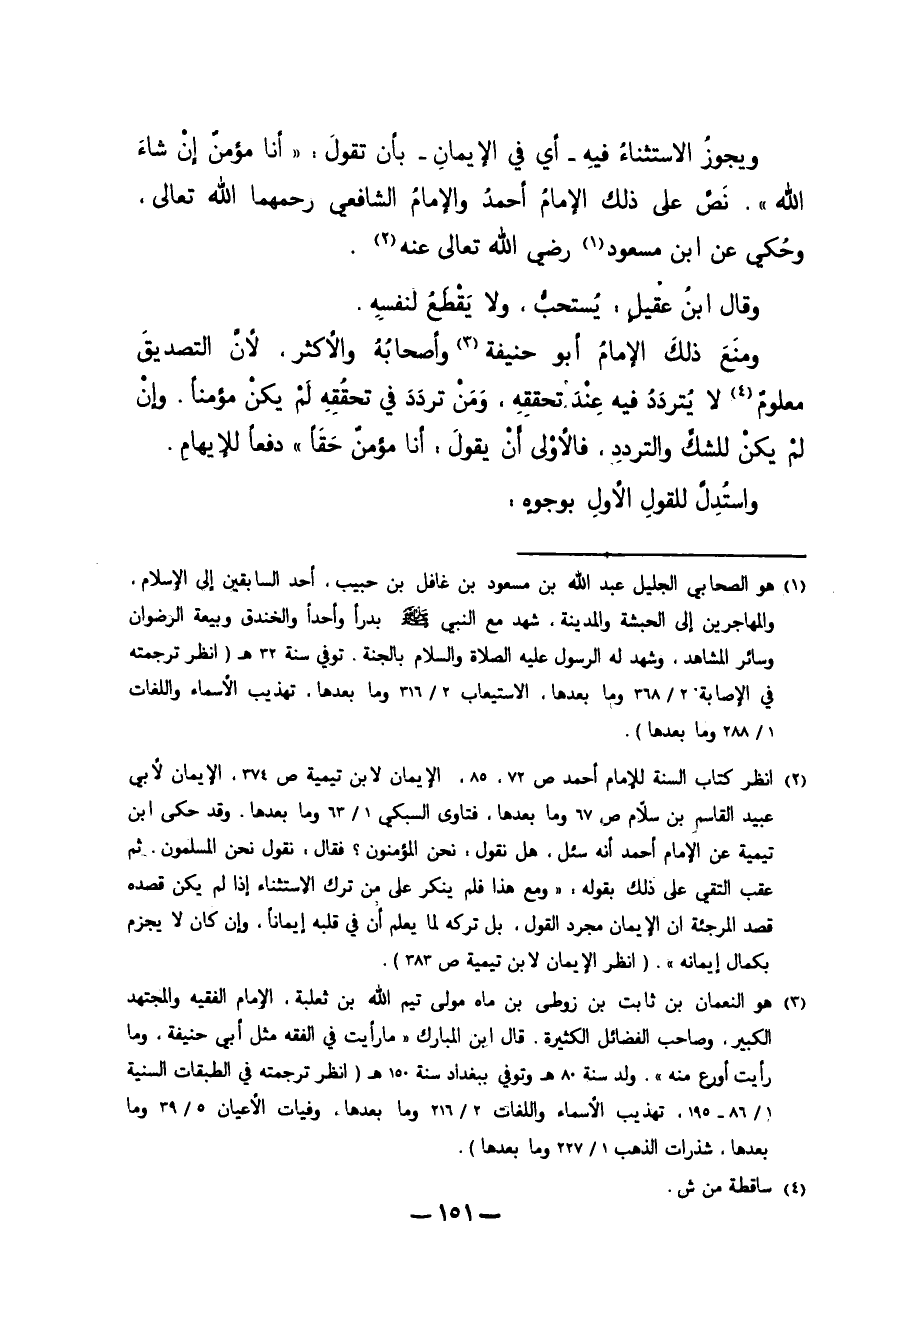 ويجوزُ الاستثناءُ فيهِ ـ أي في الإيمانِ ـ بأن تقولَ : « أنا مؤمنٌ إنْ شاءَ
الله » . نَصَّ على ذلك الإمامُ أحمدُ والإمامُ الشافعي رحمهما الله تعالى ،
وحُكي عن ابن مسعود(١) رضي الله تعالى عنه(٢) .
وقال ابنُ عقيلٍ : يُستحبُّ ، ولا يَقْطَعُ لنفسهِ .
ومنَعَ ذلكَ الإمامُ أبو حنيفة (٣) وأصحابُهُ والأكثر ، لأنَّ التصديقَ
معلومٌ (٤) لا يُتردَدُ فيه عِنْدَ تحققِهِ ، وَمَنْ تردَدَ في تحقُقِهِ لَمْ يكنْ مؤمناً . وإنْ
لمْ يكنْ للشكِّ والترددِ ، فالأوْلى أنْ يقولَ : أنا مؤمنٌ حَقَاً » دفعاً للإيهامِ .
واستُدِلَّ للقولِ الأولِ بوجوهٍ :
(١) هو الصحابي الجليل عبد الله بن مسعود بن غافل بن حبيب ، أحد السابقين إلى الإسلام ،
والمهاجرين إلى الحبشة والمدينة ، شهد مع النبي ﷺ بدراً وأحداً والخندق وبيعة الرضوان
وسائر المشاهد ، وشهد له الرسول عليه الصلاة والسلام بالجنة . توفي سنة ٣٢ هـ ( انظر ترجمته
في الإصابة ٢ / ٣٦٨ وما بعدها ، الاستيعاب ٢ / ٣١٦ وما بعدها ، تهذيب الأسماء واللغات
١ / ٢٨٨ وما بعدها ) .
(٢) انظر كتاب السنة للإمام أحمد ص ٧٢ ، ٨٥ ، الإيمان لابن تيمية ص ٣٧٤ ، الإيمان لأبي
عبيد القاسم بن سلّام ص ٦٧ وما بعدها ، فتاوى السبكي ١ / ٦٣ وما بعدها . وقد حكى ابن
تيمية عن الإمام أحمد أنه سئل ، هل نقول : نحن المؤمنون ؟ فقال : نقول نحن المسلمون . ثم
عقب التقي على ذلك بقوله : « ومع هذا فلم ينكر على من ترك الاستثناء إذا لم يكن قصده
قصد المرجئة ان الإيمان مجرد القول ، بل تركه لما يعلم أن في قلبه إيماناً ، وإن كان لا يجزم
بكمال إيمانه » . ( انظر الإيمان لابن تيمية ص ٣٨٣ ) .
(٣) هو النعمان بن ثابت بن زوطى بن ماه مولى تيم الله بن ثعلبة ، الإمام الفقيه والمجتهد
الكبير ، وصاحب الفضائل الكثيرة . قال ابن المبارك « مارأيت في الفقه مثل أبي حنيفة ، وما
رأيت أورع منه » . ولد سنة ٨٠ هـ وتوفي ببغداد سنة ١٥٠ هـ ( انظر ترجمته في الطبقات السنية
١ / ٨٦ ـ ١٩٥ ، تهذيب الأسماء واللغات ٢ / ٢١٦ وما بعدها ، وفيات الأعيان ٥ / ٣٩ وما
بعدها ، شذرات الذهب ١ / ٢٢٧ وما بعدها ) .
(٤) ساقطة من ش .
— ١٥١ —